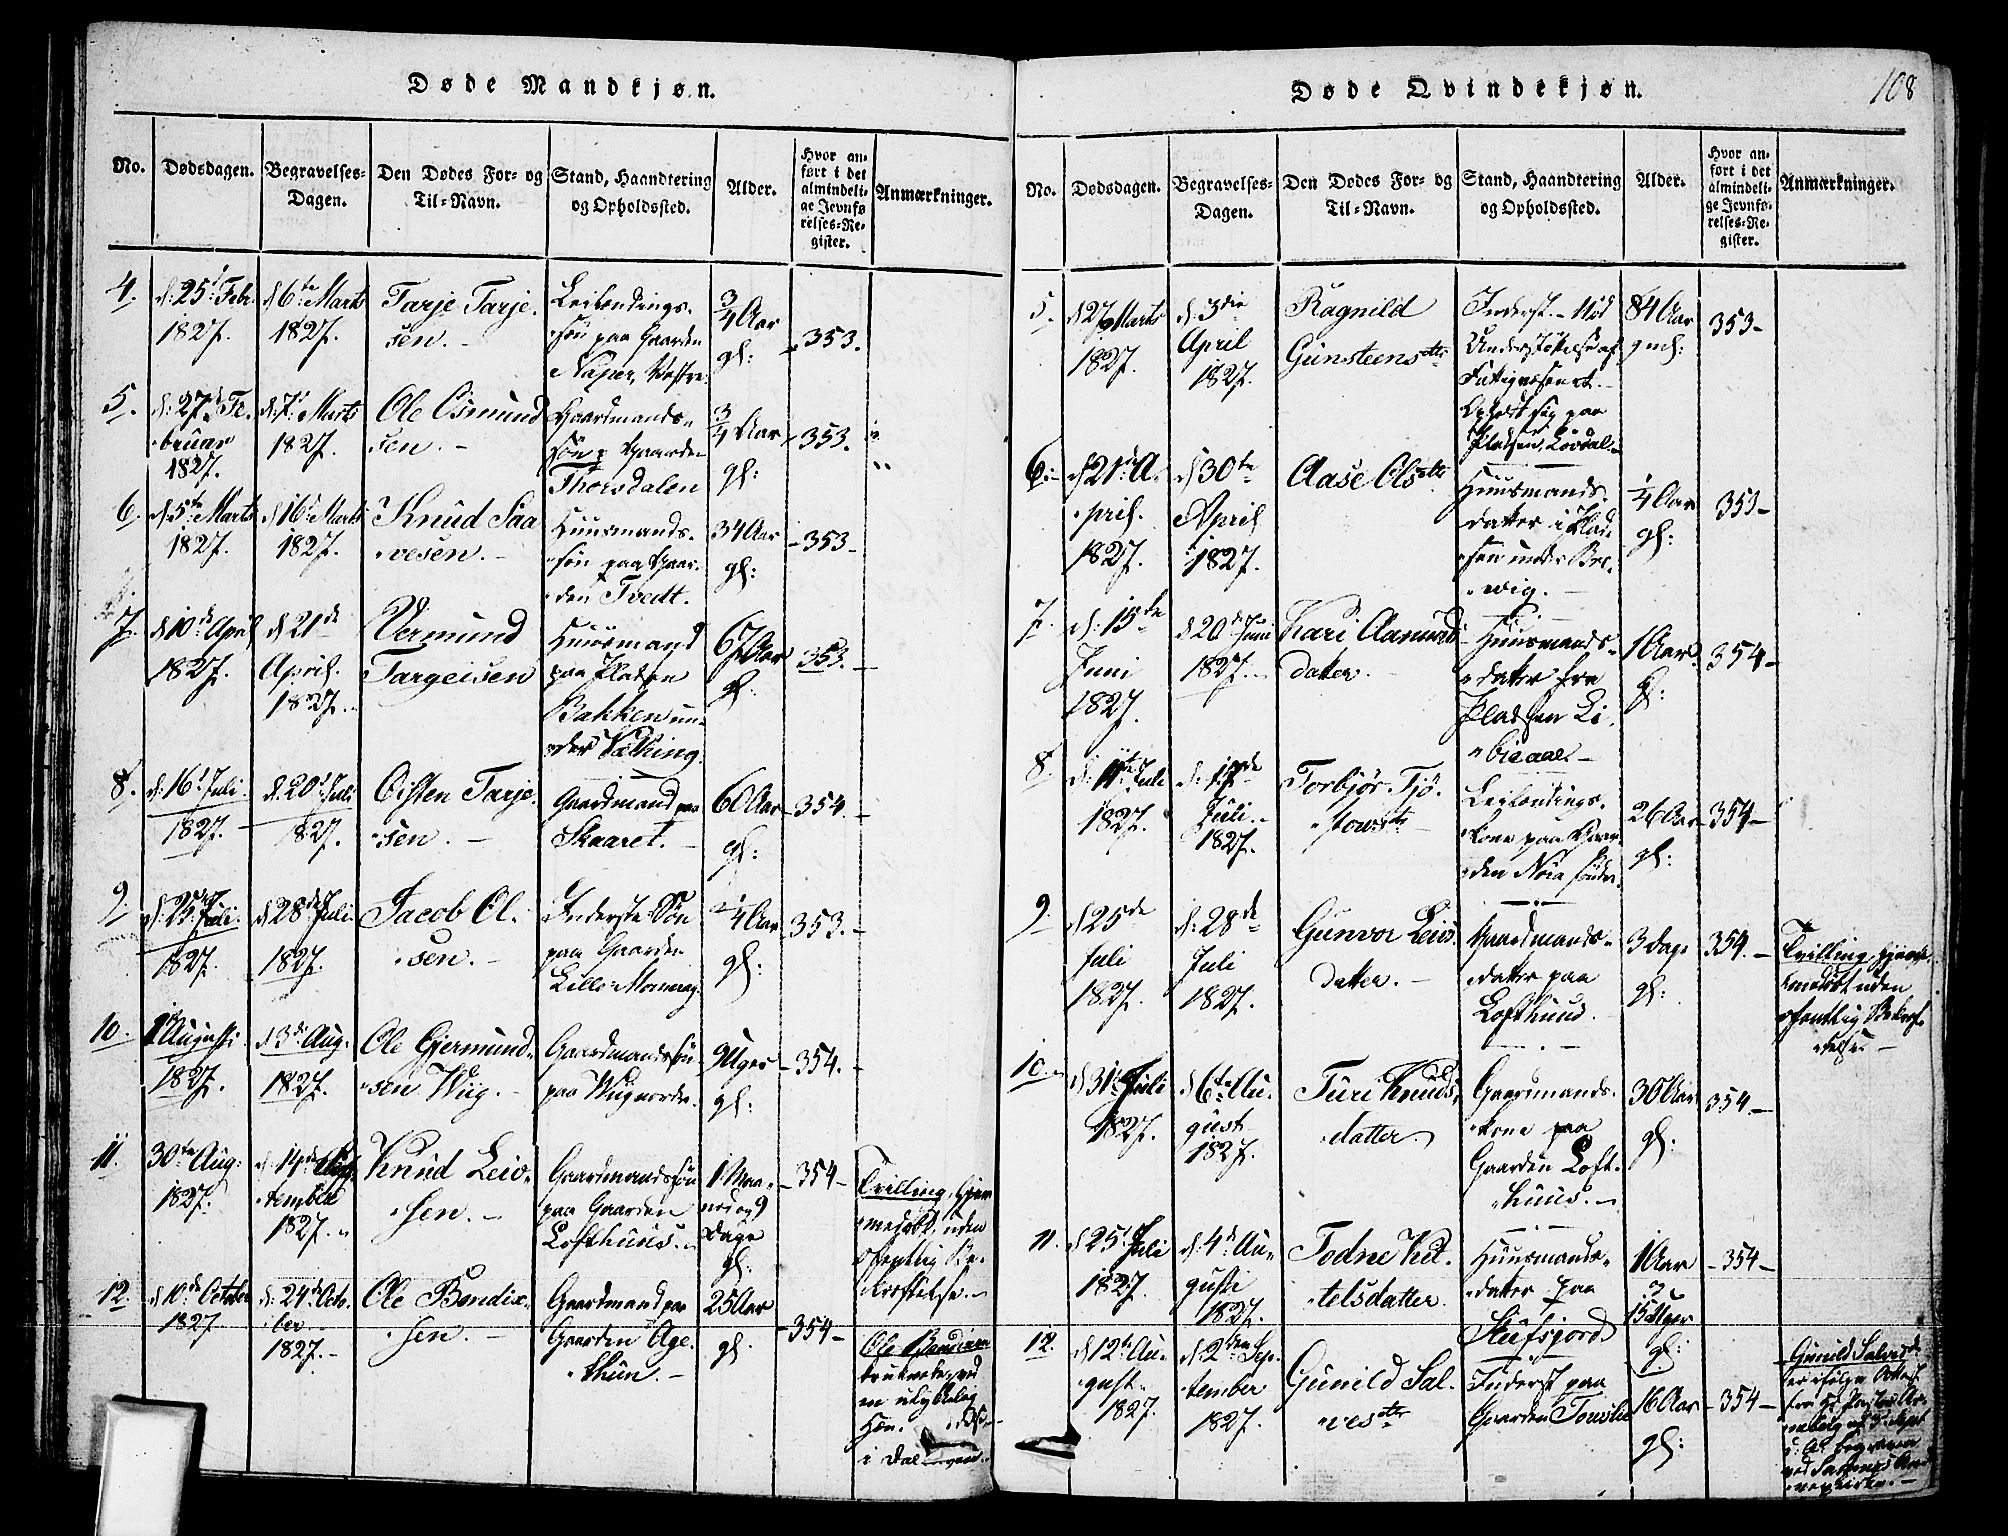 Døde Mandkjøn.
No.
Dødsdagen.
Begravelses-
Dagen.
Den Dødes For- og
Til-Navn.
Stand, Haandtering
og Opholdssted.
Alder.
Hvor an-
ført i det
almindeli-
ge Jevnfø-
relses-Re-
gister.
Anmærkninger.
4.
d: 25d Febr.
1827.
d 6te Marts
1827.
Tarje Tarje-
sen.
Leilændings-
søn paa Gaarden
Vestre.
3/4 Aar
gl:
353.
5.
d: 27de Fe-
bruar
1827.
d: 7d Marts
1827.
Ole Osmund
sen.
Gaardmands-
søn p Gaarden
Thorsdalen
3/4 Aar
gl:
353.
6.
d. 5te Marts
1827.
d 16d Marts
1827.
Knud Saa
vesen.
Huusmands-
søn paa Gaar-
den Tvedt.
34 Aar
gl:
353
7.
d 10de April
1827.
d 21de
April
1827.
Vermund
Targeisen
Huusmand
paa Pladsen
Bakken un-
der
67 Aar
gl:
353.
8.
d: 16d Juli
1827.
d. 20d Juli
1827.
Oisten Tarje-
sen.
Gaardmand paa
Skaaret.
60 Aar
gl:
354.
9.
d: 25de Juli.
1827.
d 28de Juli
1827.
Jacob Ol-
sen.
Inderste Søn
paa Gaarden
Lille
1/4 Aar
gl:
353.
10.
Augusti
1827.
d 3de Aug.
1827.
Ole Gjermund-
sen Wiig.
Gaardmandssøn
paa Wiig nordre.
9 Uger
gl:
354.
11.
30te Aug:
1827.
d. 14de Sep-
tember
1827.
Knud Leiv-
sen.
Gaardmandssøn
paa Gaarden
Lofthuus.
1 Maa-
ned og 9
Dage
gl:
354
Tvilling, hjem-
medøbt, uden
ofentlig Be-
kræftelse.
12.
d 10de October
1827
d: 24de Octo-
ber
1827.
Ole Bendix-
sen.
Gaardmand paa
Gaarden Age-
thun.
25 Aar
gl.
354
Ole Bendixen
druknede, ved
en ulykkelig
Hæn-
i
Døde Qvindekjøn.
108
No.
Dødsdagen.
Begravelses-
Dagen.
Den Dødes For- og
Til-Navn.
Stand, Haandtering
og Opholdssted.
Alder.
Hvor an-
ført i det
almindeli-
ge Jevnfø-
relses-Re-
gister.
Anmærkninger.
5.
d 27 Marts
1827.
d. 3die
April
1827.
Ragnild
Gunsteensdtr
Inderst. Nød
Understøttelse af
Fattigvæsenet.
Opholdt sig paa
Pladsen
84 Aar
gml:
353
6.
d 21de A-
pril.
1827.
d 30te
April
1827.
Aase Olsdtr
Huusmands-
datter i Plad-
sen under Bre-
vig.
1/4 Aar
gl:
353
7.
d. 15de
Juni
1827.
d 20de Juni
1827.
Kari Aamunds
datter.
Huusmands-
datter fra
Pladsen Li-
1 Aar
gl:
354
8.
d: 11te Juli
1827.
d. 17de
Juli.
1827.
Torbjør Tjø-
stowsdtr
Leilændings-
kone paa Gaar-
den
26 Aar
gl:
354
9.
d 25de
Juli
1827.
d. 28de
Juli
1827.
Gunvor Leivs-
datter.
Gaardmands-
datter paa
Lofthuus.
3 Dage
gl:
354.
Tvilling, hjem-
medøbt uden
ofentlig Bekræf-
telse.
10.
d 31te Juli
1827.
d 6te Au-
gust
1827.
Turi Knuds-
datter.
Gaardmands-
kone paa
Gaarden Loft-
huus.
30 Aar
gl:
354
11.
d 25d Juli
1827.
d. 4de Au-
gusti
1827.
Todne Kit-
telsdatter.
Huusmands-
datter paa
1 Aar
15 Uger
gl:
354
12.
d 12te Au-
gust
1827.
d: 2den Sep-
tember
1827.
Gunild Sal-
vesdtr
Inderst paa
Gaarden
16 Aar
gl:
354
Gunild Salvesd.
er ifølge Attest
fra Hr Pastor
begraven
ved